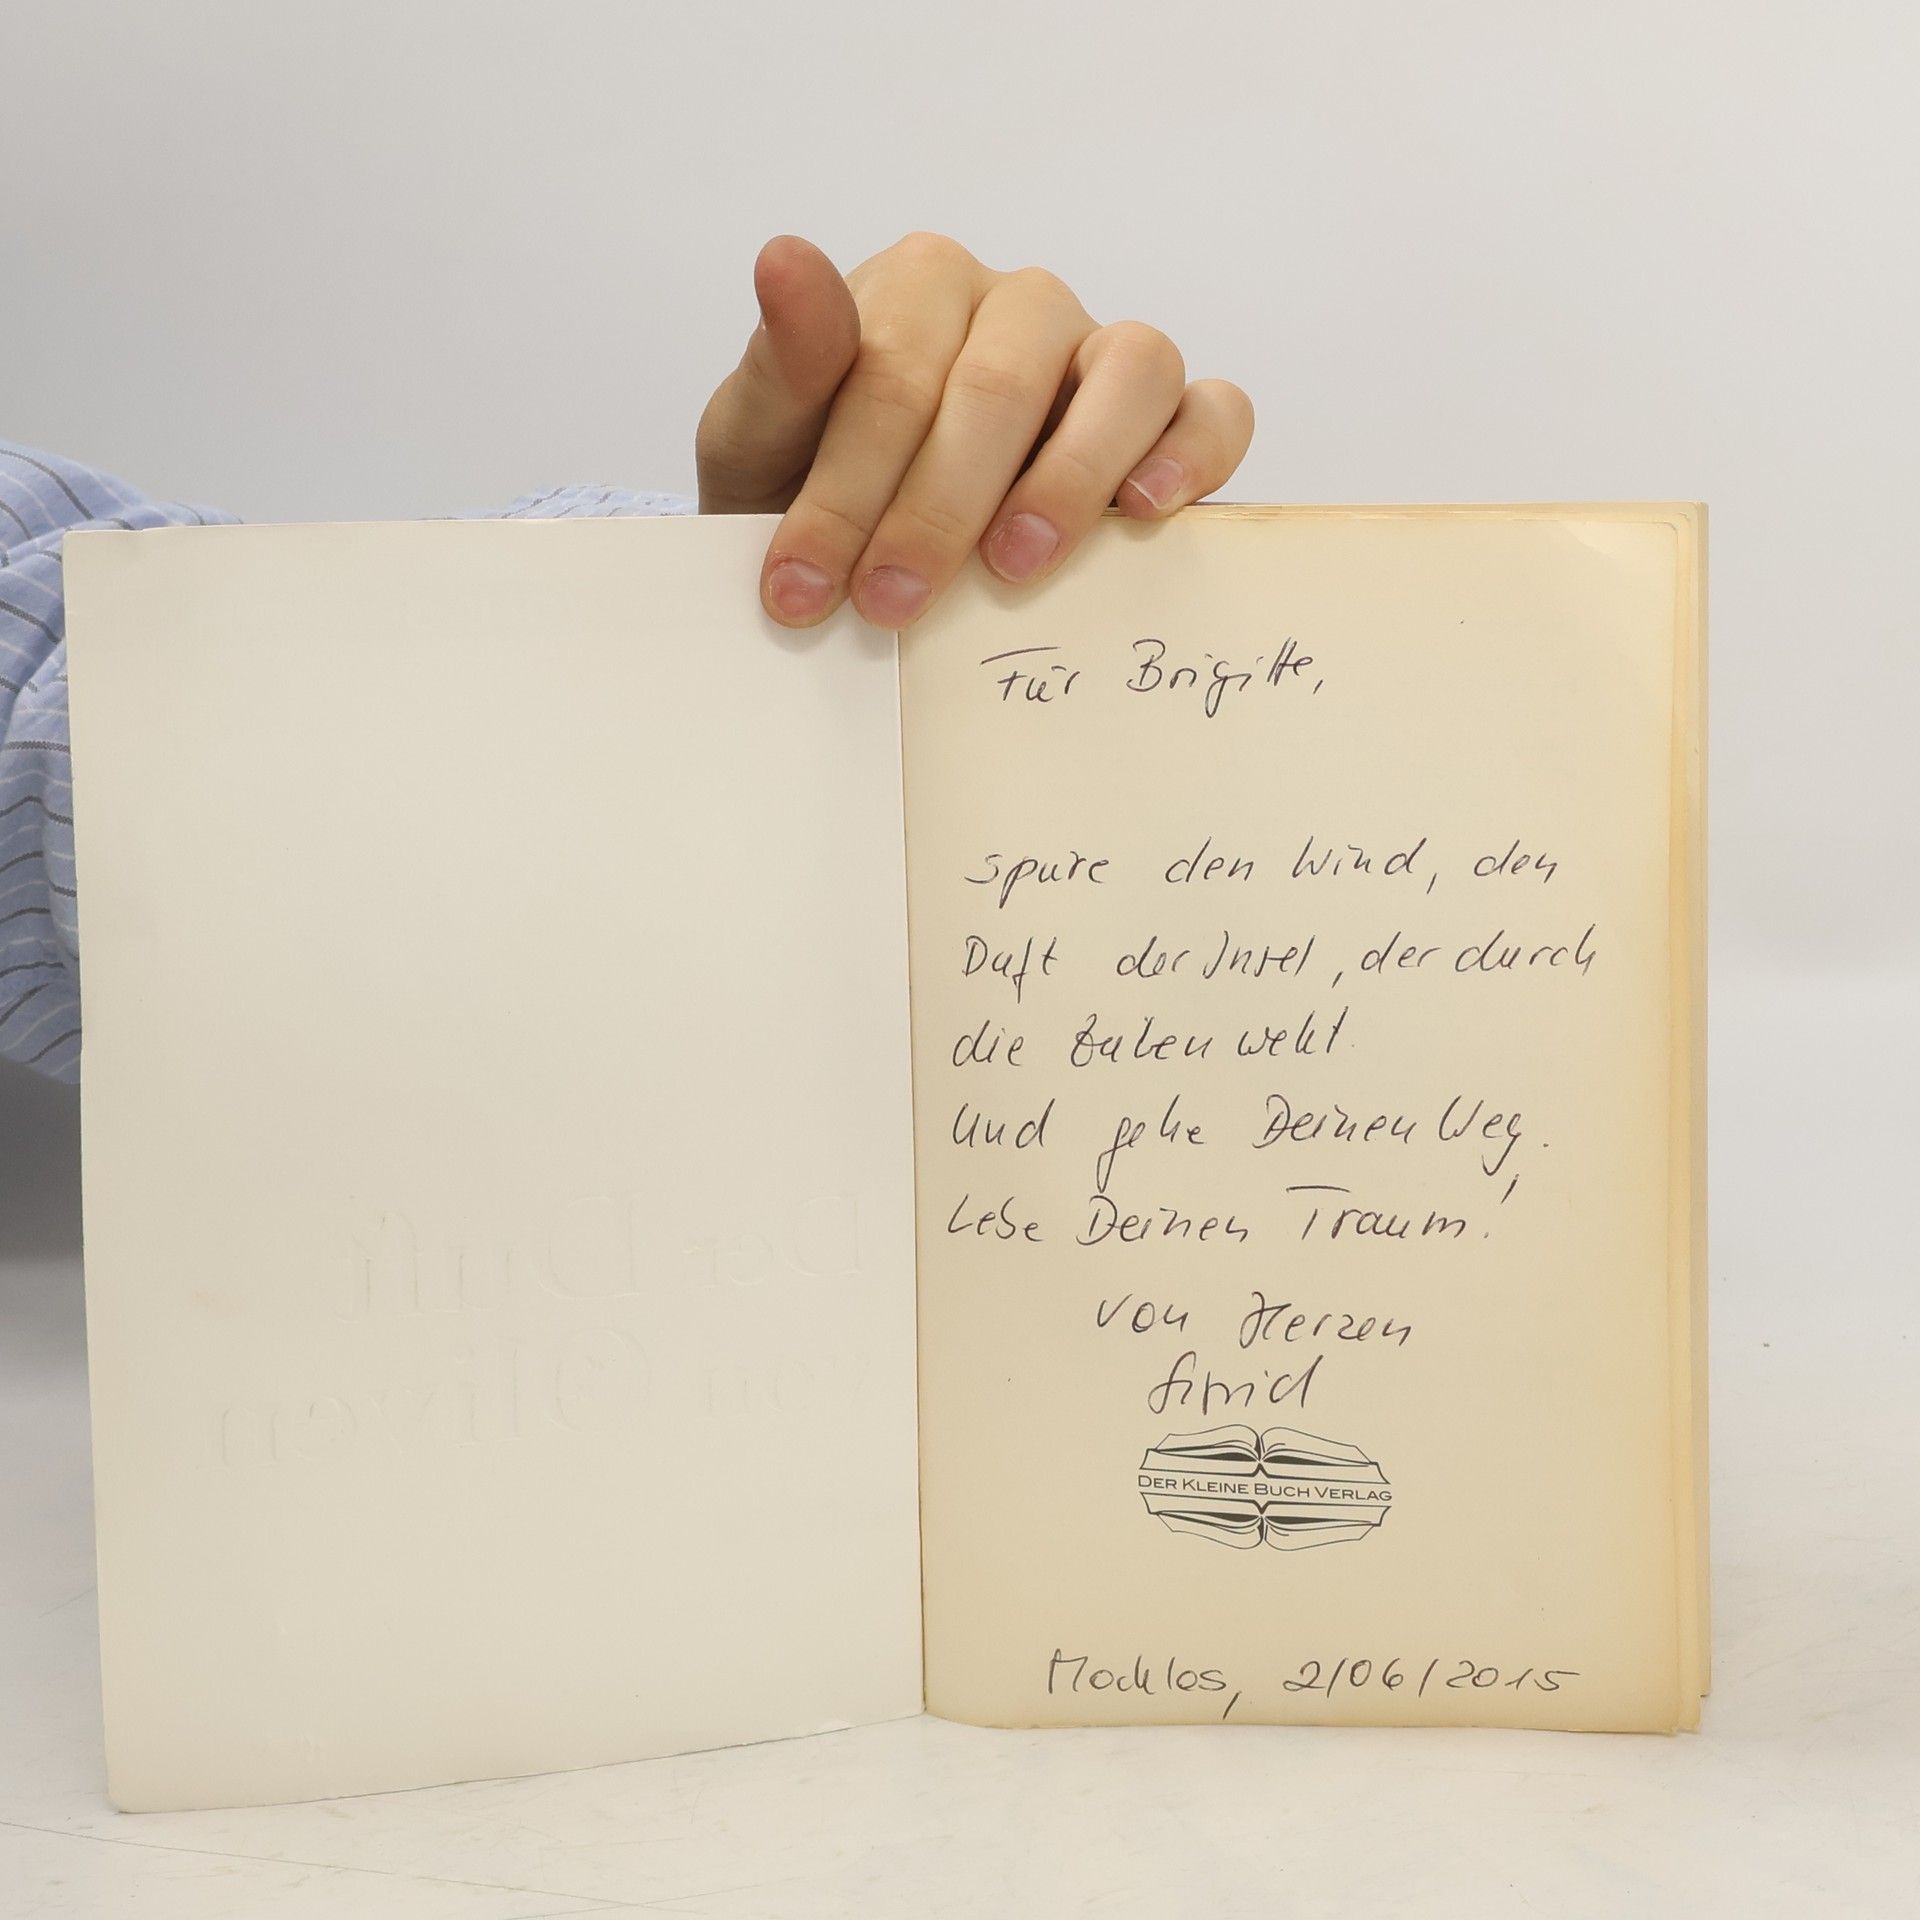 Für Brigitte,
spüre den Wind, den
Duft der Insel, der durch
die Zeilen weht.
Und gehe Deinen Weg.
Lebe Deinen Traum!
von Herzen
DER KLEINE BUCH VERLAG
Mochlos, 2/06/2015
Der Duft
von Oliven